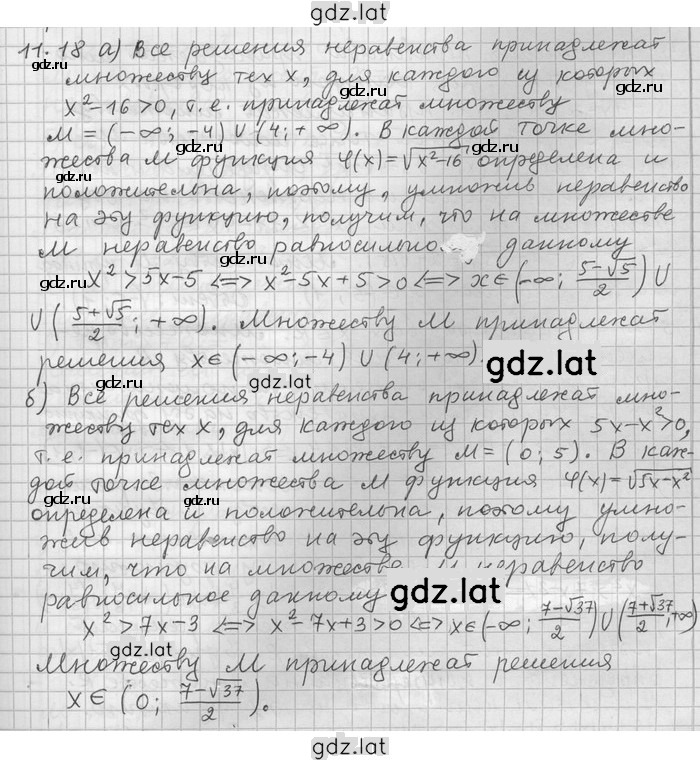 gdz.lat
11.18 а) Все решения неравенства принадлежат
множеству тех x, для каждого из которых
x²-16>0, т.е. принадлежат множеству
M = (-∞; -4) ∪ (4; +∞). В каждой точке мно-
жества М функция φ(x)=√(x²-16) определена и
положительна, поэтому, умножив неравенство
на эту функцию, получим, что на множестве
М неравенство равносильно данному
x²>5x-5 <=> x²-5x+5>0 <=> x∈(-∞; (5-√5)/2) ∪
∪ ((5+√5)/2; +∞). Множеству М принадлежат
решения x∈(-∞;-4) ∪ (4;+∞).
б) Все решения неравенства принадлежат мно-
жеству тех x, для каждого из которых 5x-x²>0,
т.е. принадлежат множеству М=(0; 5). В каж-
дой точке множества М функция φ(x)=√(5x-x²)
определена и положительна, поэтому умно-
жив неравенство на эту функцию, полу-
чим, что на множестве М неравенство
равносильное данному
x²>7x-3 <=> x²-7x+3>0 <=> x∈(-∞; (7-√37)/2) ∪ ((7+√37)/2; +∞)
Множеству М принадлежат решения
x∈ (0; (7-√37)/2).
gdz.lat